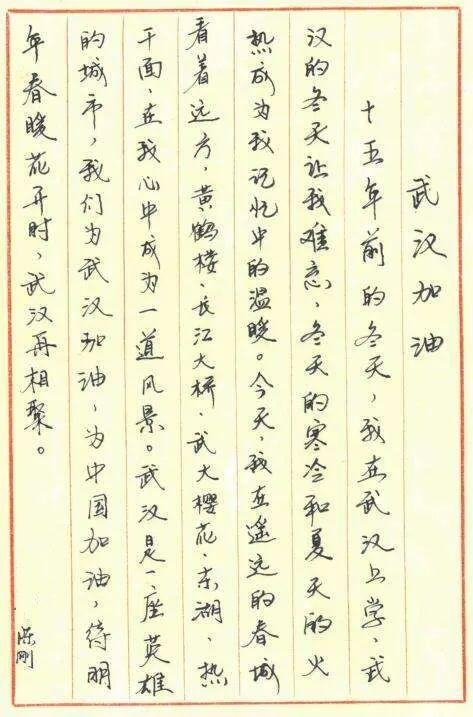 武汉加油
十五年前的冬天，我在武汉上学，武
汉的冬天让我难忘，冬天的寒冷和夏天的火
热成为我记忆中的温暖。今天，我在遥远的春城
看着远方，黄鹤楼、长江大桥、武大樱花、东湖、热
干面，在我心中成为一道风景。武汉是一座英雄
的城市，我们为武汉加油，为中国加油，待明
年春暖花开时，武汉再相聚。
陈刚